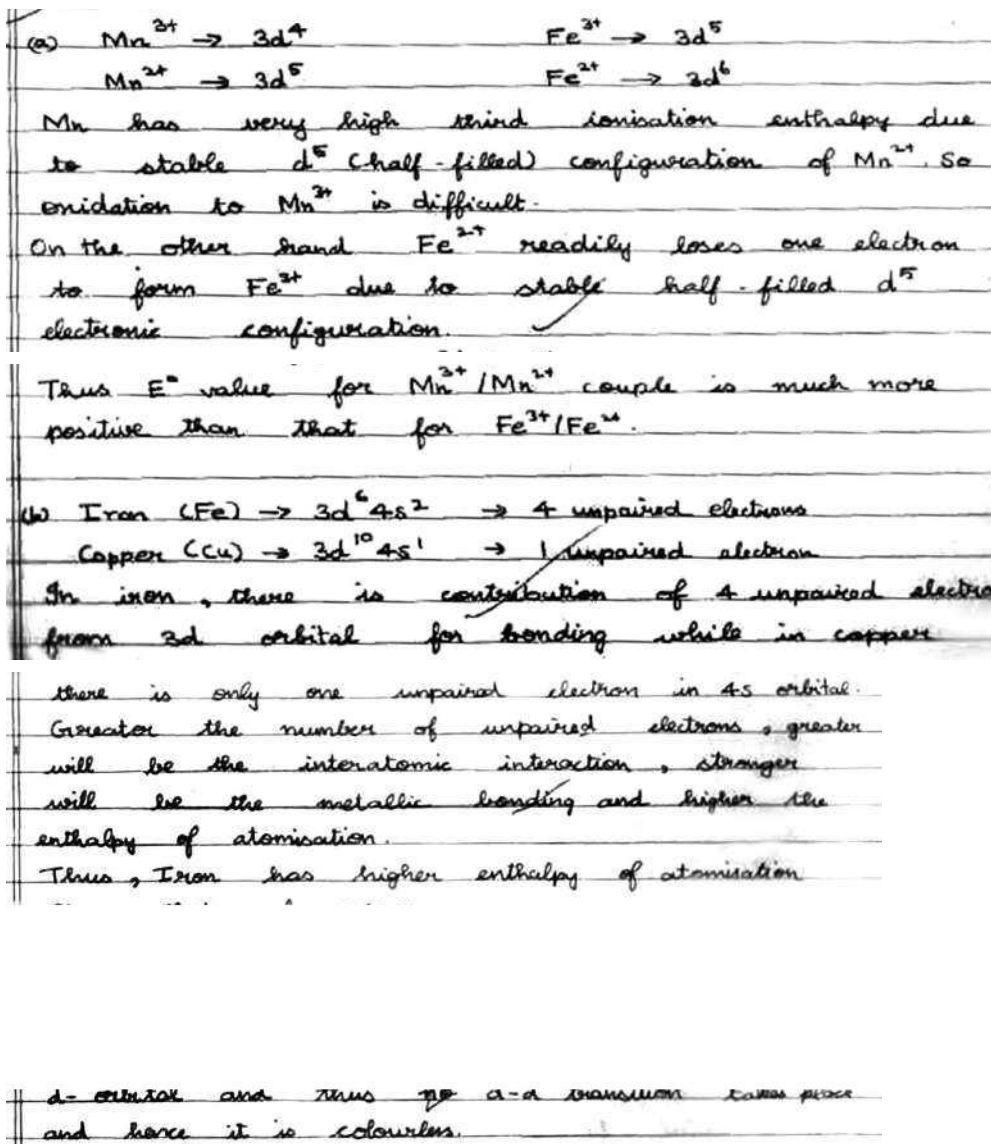 (a) Mn³⁺ → 3d⁴ Fe³⁺ → 3d⁵
Mn²⁺ → 3d⁵ Fe²⁺ → 3d⁶
Mn has very high third ionisation enthalpy due
to stable d⁵ (half-filled) configuration of Mn²⁺. So
oxidation to Mn³⁺ is difficult.
On the other hand Fe²⁺ readily loses one electron
to form Fe³⁺ due to stable half-filled d⁵
electronic configuration.
Thus E° value for Mn³⁺/Mn²⁺ couple is much more
positive than that for Fe³⁺/Fe²⁺.
(b) Iron (Fe) → 3d⁶4s² → 4 unpaired electrons
Copper (Cu) → 3d¹⁰4s¹ → 1 unpaired electron
In iron, there is contribution of 4 unpaired electro
from 3d orbital for bonding while in copper
there is only one unpaired electron in 4s orbital.
Greater the number of unpaired electrons, greater
will be the interatomic interaction, stronger
will be the metallic bonding and higher the
enthalpy of atomisation.
Thus, Iron has higher enthalpy of atomisation
d-orbital and thus no d-d transition takes place
and hence it is colourless.